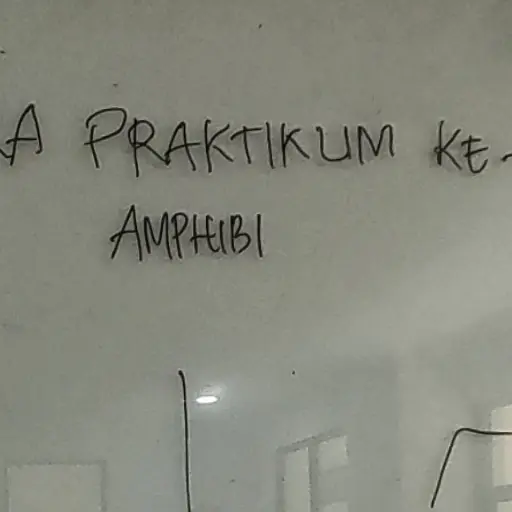 A PRAKTIKUM KE-
AMPHIBI